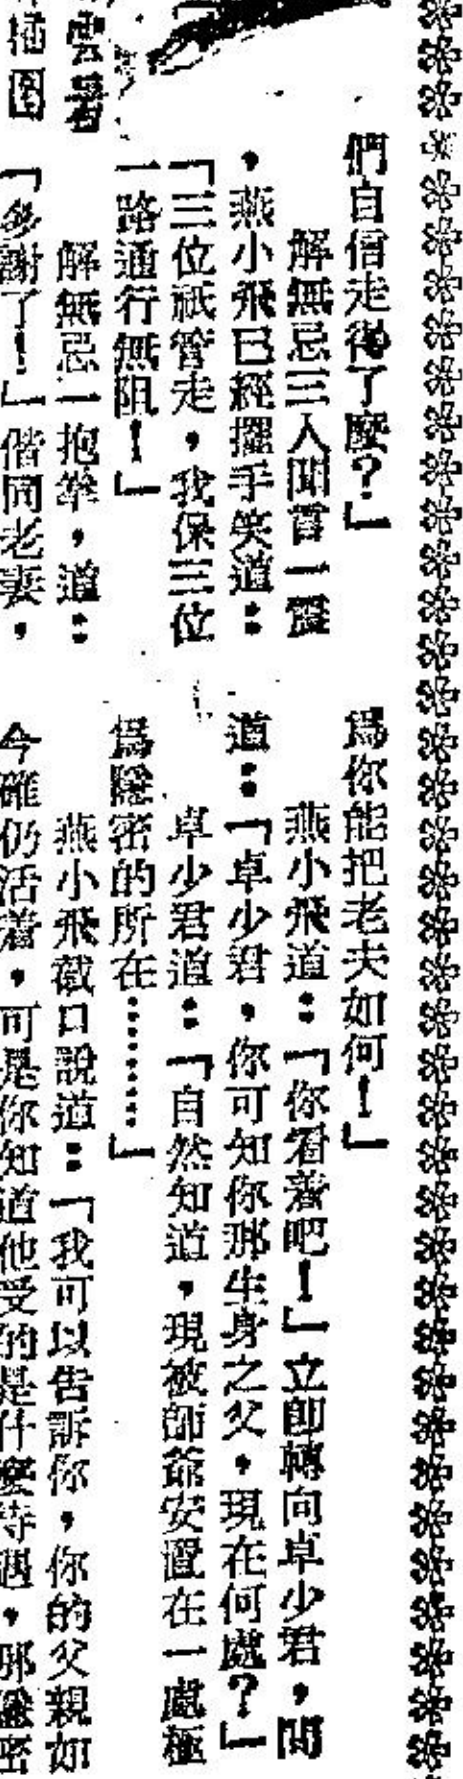 們自信走得了麼？」
解無忌三人聞言一震
，燕小飛已經擺手笑道：
「三位祇管走，我保三位
一路通行無阻！」
解無忌一抱拳，道：
「多謝了！」偕同老妻，
為你能把老夫如何！」
燕小飛道：「你看着吧！」立即轉向卓少君，問
道：「卓少君，你可知你那生身之父，現在何處？」
卓少君道：「自然知道，現被師爺安置在一處極
為隱密的所在…………」
燕小飛截口說道：「我可以告訴你，你的父親如
今確仍活着，可是你知道他受的是什麼待遇，那隱密
雲著
插图